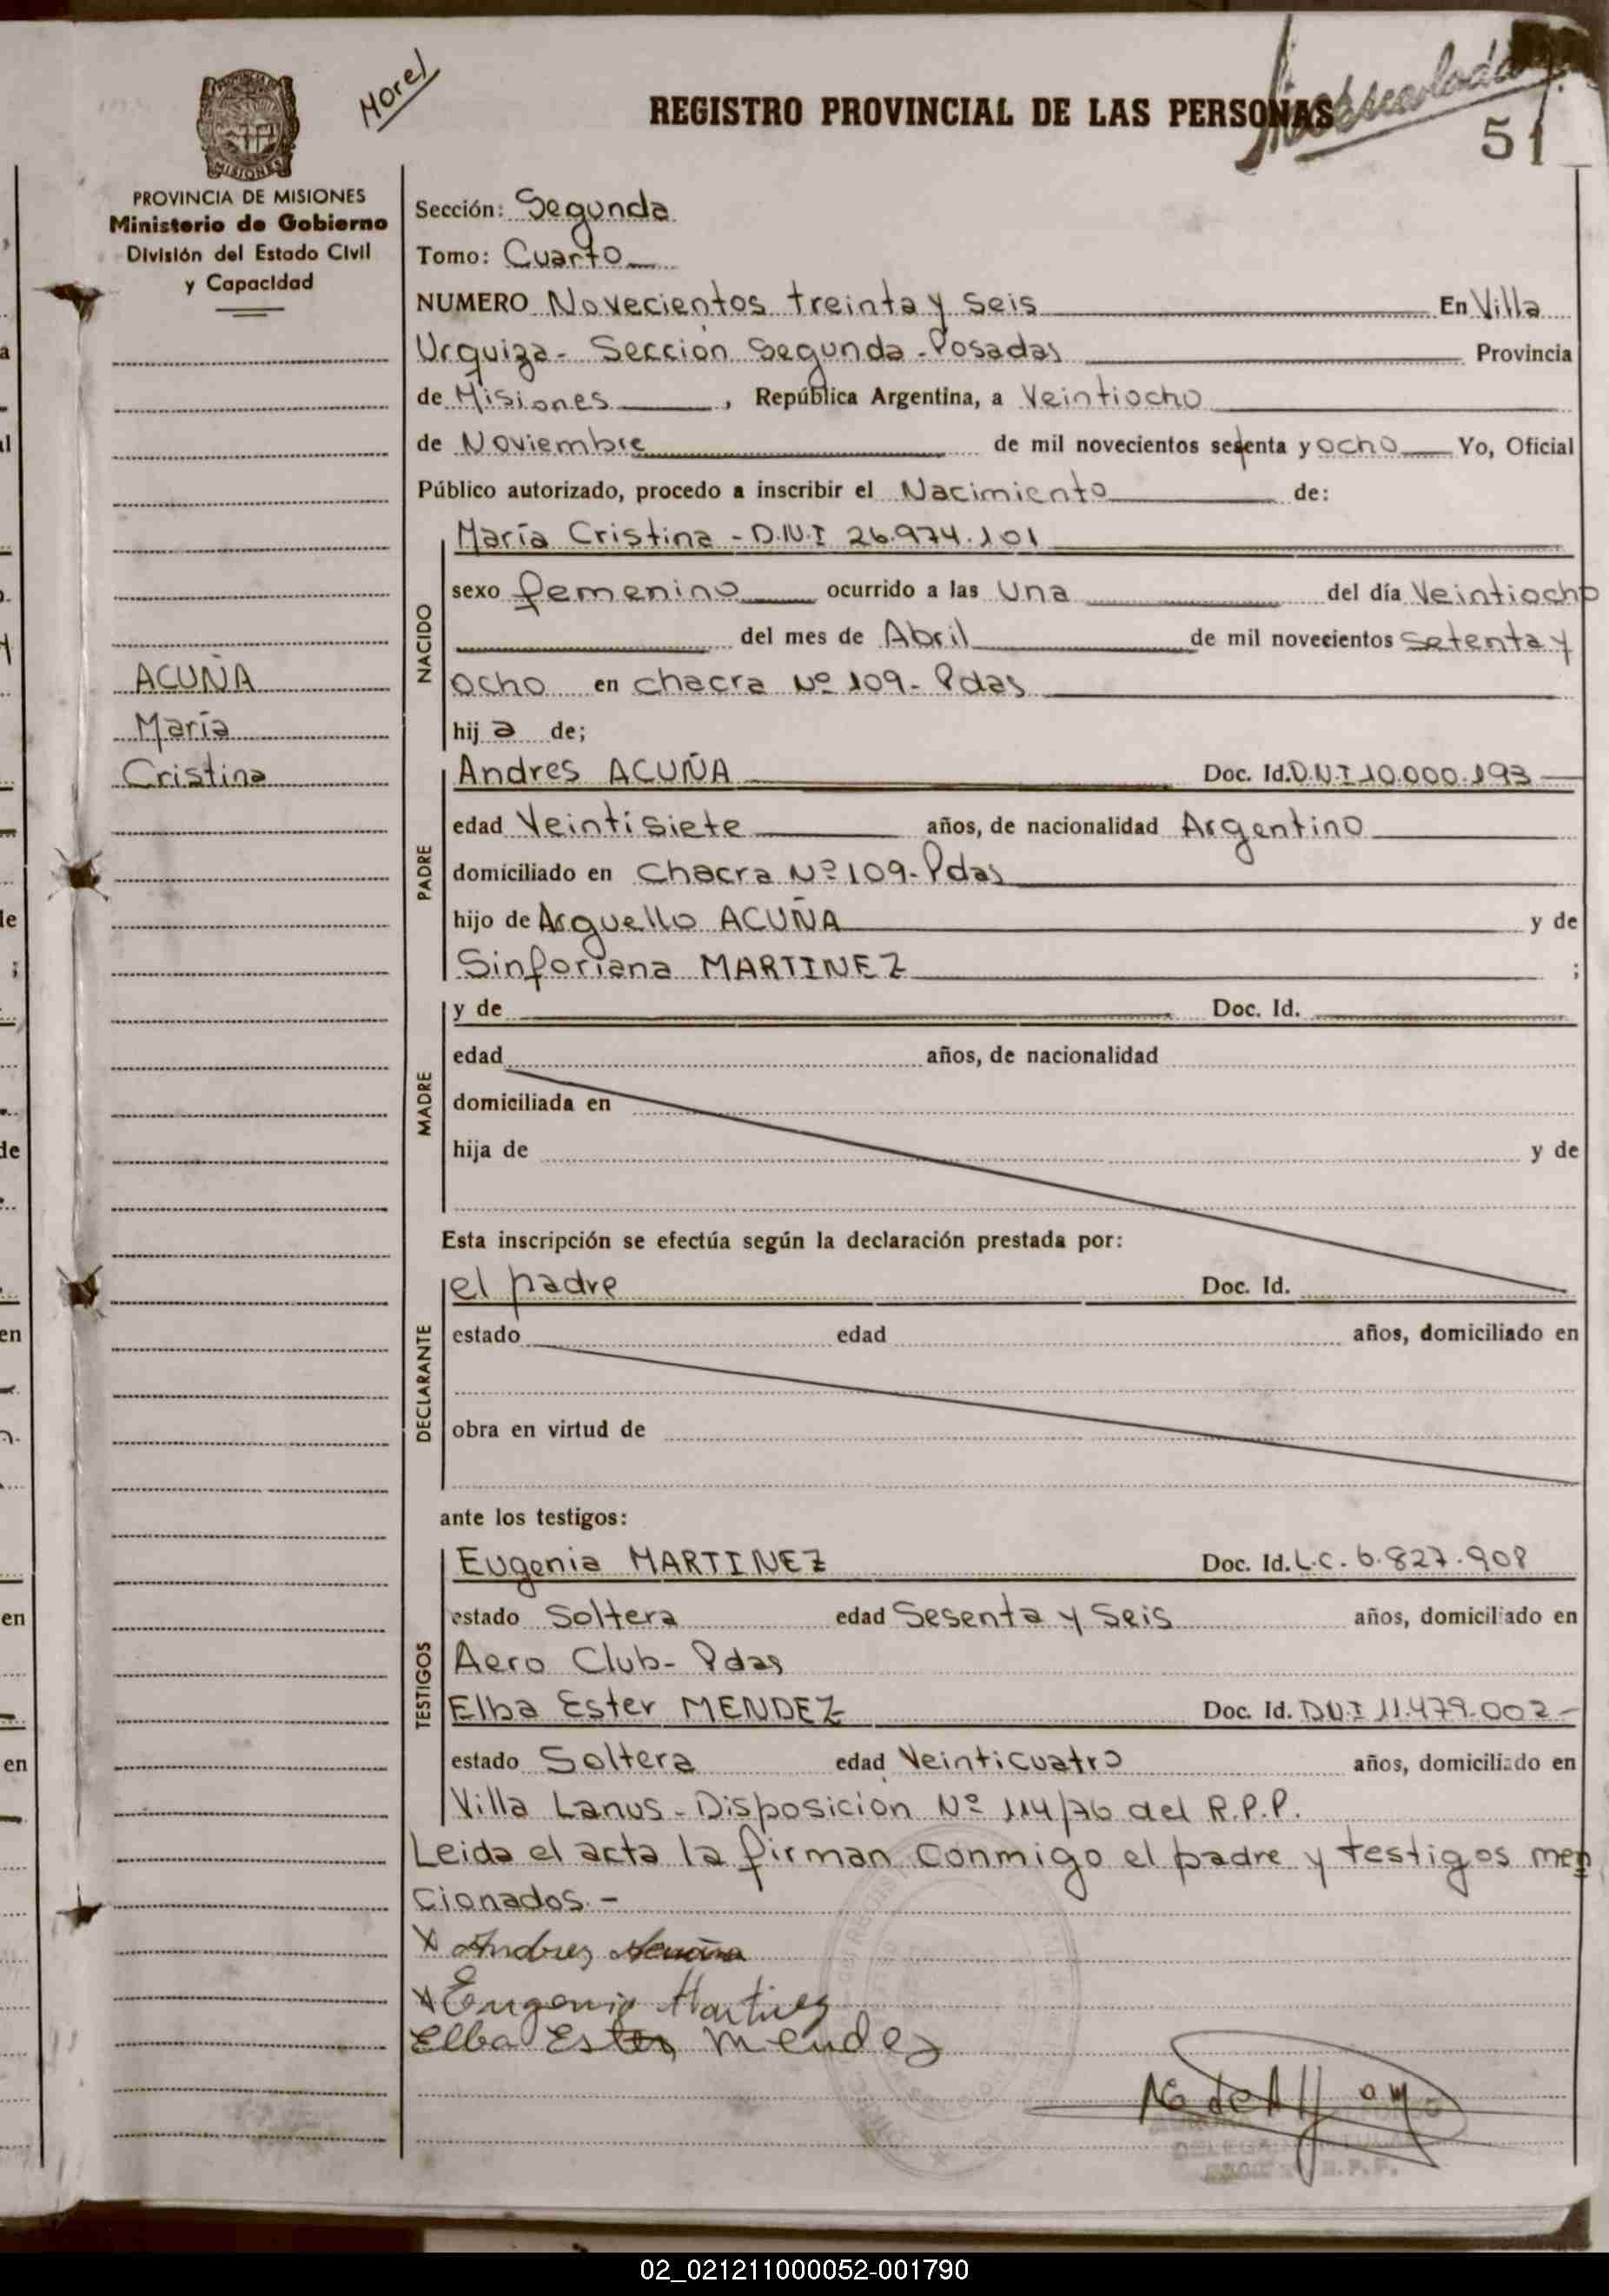 Morel
REGISTRO PROVINCIAL DE LAS PERSONAS
51
PROVINCIA DE MISIONES
Ministerio de Gobierno
División del Estado Civil
y Capacidad
ACUÑA
María
Cristina
Sección: Segunda
Tomo: Cuarto
NUMERO Novecientos treinta y seis En Villa
Urquiza - Sección Segunda - Posadas Provincia
de Misiones, República Argentina, a Veintiocho
de Noviembre de mil novecientos setenta y ocho Yo, Oficial
Público autorizado, procedo a inscribir el Nacimiento de:
NACIDO
María Cristina - D.N.I 26.974.101
sexo femenino ocurrido a las Una del día Veintiocho
del mes de Abril de mil novecientos setenta y
ocho en chacra Nº 109- Pdas
hija de;
PADRE
Andres ACUÑA Doc. Id. D.N.I 10.000.193
edad Veintisiete años, de nacionalidad Argentino
domiciliado en Chacra Nº 109- Pdas
hijo de Arguello ACUÑA y de
Sinforiana MARTINEZ ;
MADRE
y de Doc. Id.
edad años, de nacionalidad
domiciliada en
hija de y de
Esta inscripción se efectúa según la declaración prestada por:
DECLARANTE
el padre Doc. Id.
estado edad años, domiciliado en
obra en virtud de
ante los testigos:
TESTIGOS
Eugenia MARTINEZ Doc. Id. L.C. 6.827.908
estado Soltera edad Sesenta y Seis años, domiciliado en
Aero Club- Pdas
Elba Ester MENDEZ Doc. Id. DNI 11.479.002-
estado Soltera edad Veinticuatro años, domiciliado en
Villa Lanus - Disposición Nº 114/76 del R.P.P.
Leida el acta la firman conmigo el padre y testigos men
cionados.-
x Andres Acuña
x Eugenia Martinez
Elba Ester Mendez
02_021211000052-001790